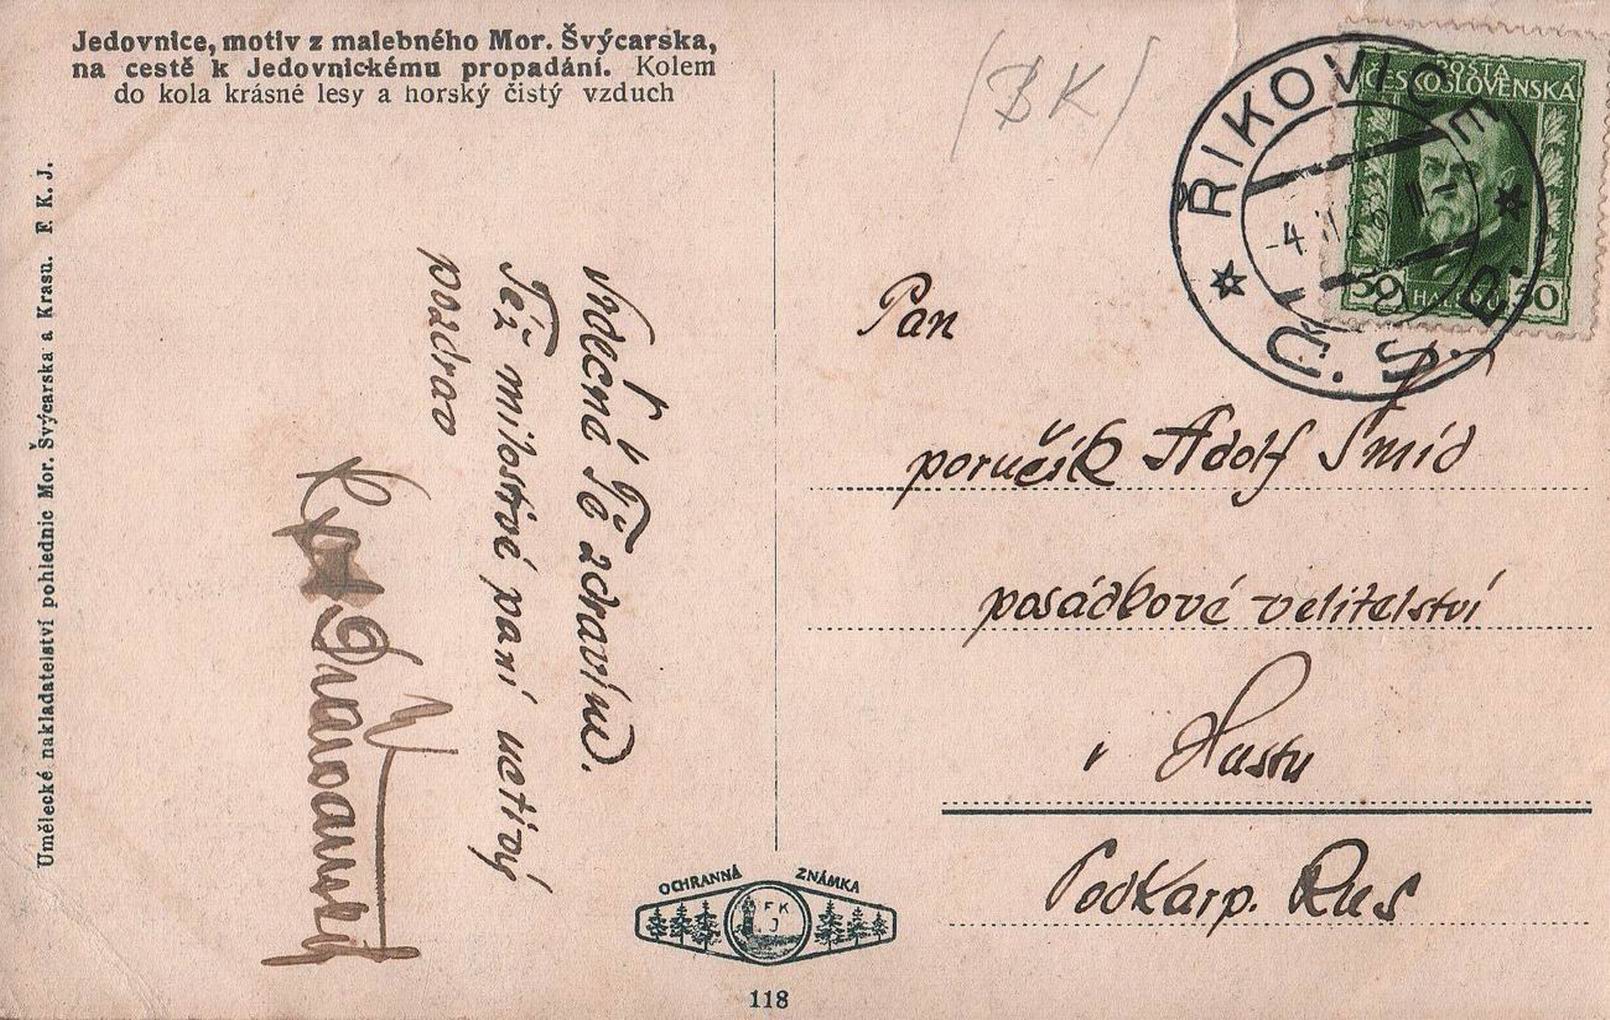 Jedovnice, motiv z malebného Mor. Švýcarska,
na cestě k Jedovnickému propadání. Kolem
do kola krásné lesy a horský čistý vzduch
Umělecké nakladatelství pohlednic Mor. Švýcarska a Krasu. F. K. J.
Srdečně Tě zdravíme.
Též milostivé paní uctivý
pozdrav
(BK)
ŘIKOVICE
Č.S.R.
-4
POŠTA
ČESKOSLOVENSKA
50 HALÉŘŮ 50
Pan
poručík Adolf Šmíd
posádkové velitelství
v Hustu
PodKarp. Rus
OCHRANNÁ ZNÁMKA
F K
J
118